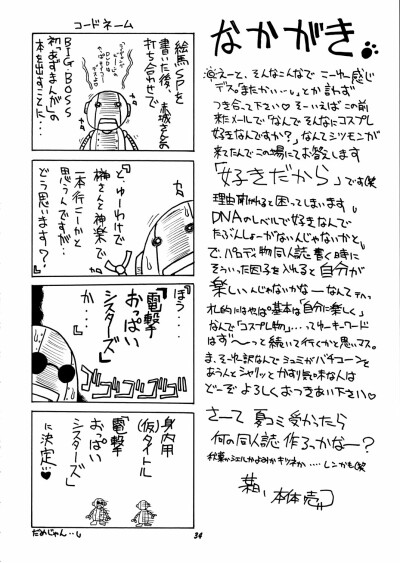 なかがき
えーと、そんなこんなで こーゆー感じ
デス。「またかいい…」とか言わず
つき合って下さい♡ そーいえばこの前
来たメールで「なんでそんなにコスプレ
好きなんですか?」なんてシツモンが
来てたんでこの場にてお答えします
「好きだから」です(笑
理由聞かれると困ってしまいます
DNAのレベルで好きなんで
たぶんしょーがないんじゃないかと
で、パロディ物同人誌書く時に
そういった因子を入れると自分が
楽しいんじゃないかなーなんて
札的にはやっぱ基本は「自分に楽しく」
なんで「コスプレ物」…ってキーワードは
ずーっと続いて行くかと思いマス。
ま、そーゆー訳なんでシュミがバチコーンと
あうんとシャリッとかすり気味な人は
どーぞ よろしくおつきあい下さい♡
さーて 夏コミ受かったら
何の同人誌作ろっかなー?
コードネーム
絵馬SPを
書いた後、赤城さんと
打ち合わせで
BIG BOSS
初「あずまんが」の
本を出すことに…
『と、ゆーわけで
榊さんと神楽で
一本行こーかと
思うんですが…
どう思います?』
『ほう…
「電撃
おっぱい
シスターズ」
か…』
ゴゴゴゴゴ
身内用
(仮)タイトル
「電撃
おっぱい
シスターズ」
に決定…♡
だめじゃん…
34